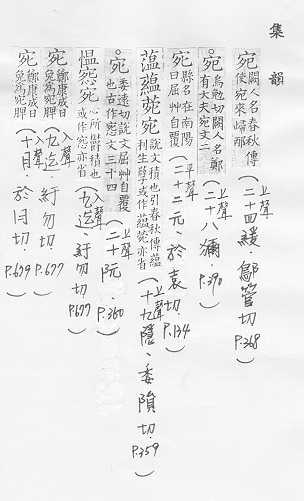 集韻
宛 闕人名春秋傳
使宛來歸祊
(上聲二十四緩、鄒管切 P.368)
宛 烏勉切闕人名鄭
有大夫宛文二
(上聲二十八獮、P.390)
宛 縣名在南陽
曰屈艸自覆
(平聲二十二元、於袁切、P.134)
薀蘊宛 說文積也引春秋傳薀
利生孽或作蘊亦省
(上聲十九隱、委隕切、P.359)
宛 委遠切說文屈艸自覆
也古作宛文三十四
(上聲二十阮、P.360)
愠惌宛 心所鬱積也
或作惌亦省
(入聲九迄、紆勿切 P.677)
宛 鄭康成曰
兔爲宛脾
(入聲九迄 紆勿切、P.677)
宛 鄭康成曰
兔爲宛脾
(入聲十月、於月切、P.679)